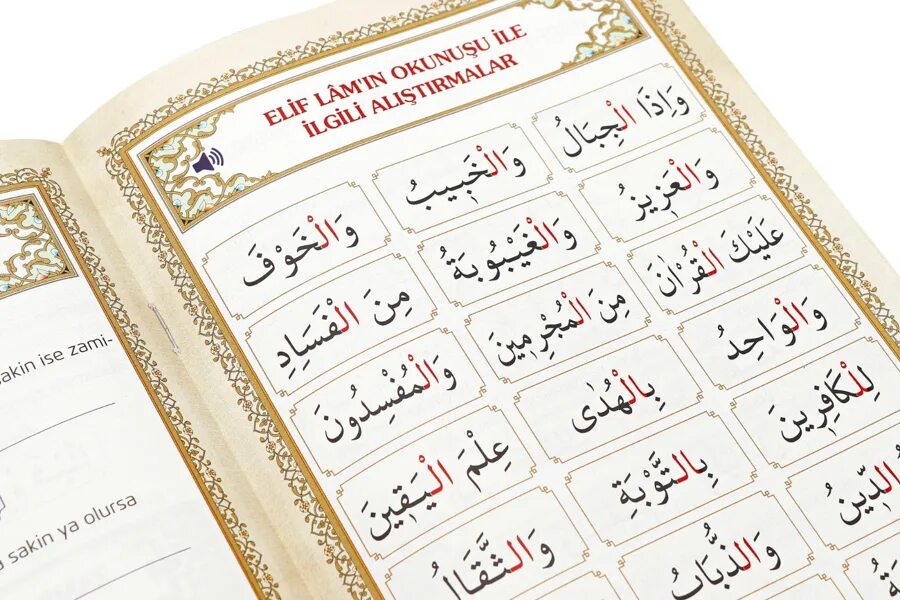 sakin ise zami-
sakin ya olursa
ELİF LÂM'IN OKUNUŞU İLE
İLGİLİ ALIŞTIRMALAR
وَاِذَا الْجِبَالُ
وَالْخَبِيبُ
وَالْخَوْفَ
وَالْعَزِيزُ
وَالْغَيْبُوبَةُ
مِنَ الْفَسَادِ
عَلَيْكَ الْقُرْاٰنَ
مِنَ الْمُجْرِمِينَ
وَالْمُفْسِدُونَ
وَالْوَاحِدُ
بِالْهُدٰى
عِلْمَ الْيَقِينَ
لِلْكَافِرِينَ
بِالتَّوْبَةِ
الدِّينُ
وَالذُّبَابُ